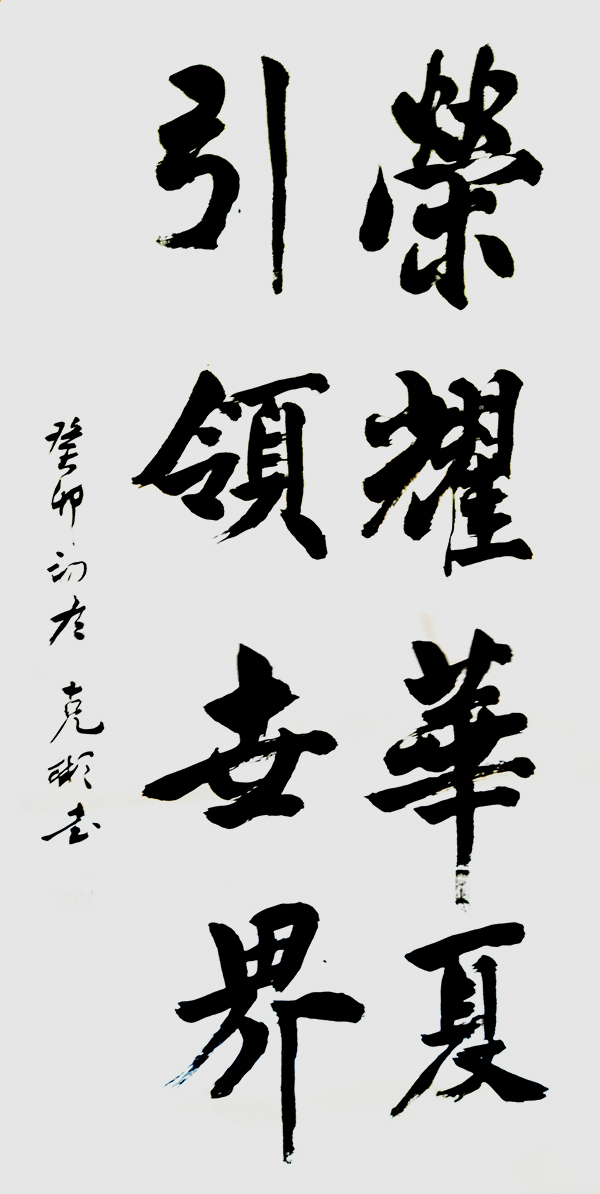 榮耀華夏
引領世界
癸卯初冬 克彬书